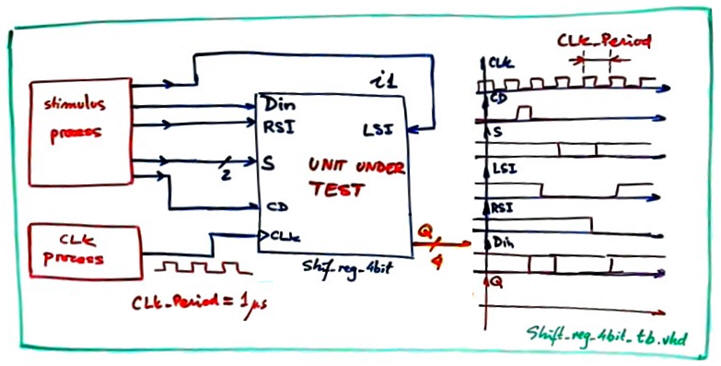 stimulus
process
CLK
process
CLK_Period = 1µs
i1
Din
RSI
LSI
S
2
UNIT UNDER
TEST
CD
CLK
Q
4
Shif_reg_4bit
CLK_Period
CLK
CD
S
LSI
RSI
Din
Q
Shift_reg_4bit_tb.vhd